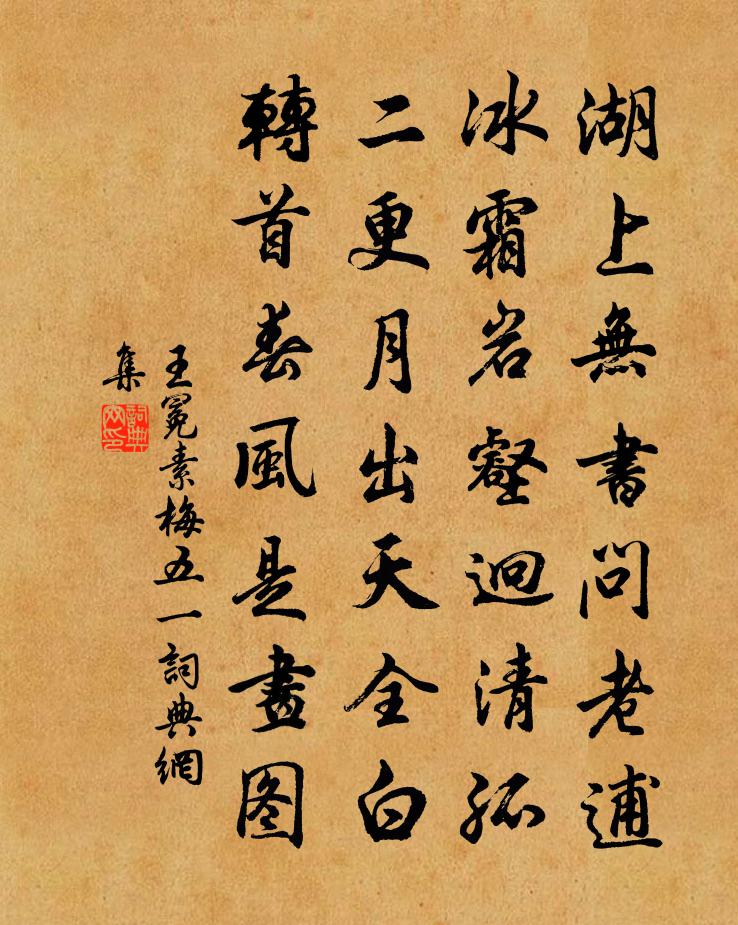 湖上無書問老逋
冰霜岩壑迥清孤
二更月出天全白
轉首春風是畫图
王冕素梅五一詞典網
集
詞典
网印